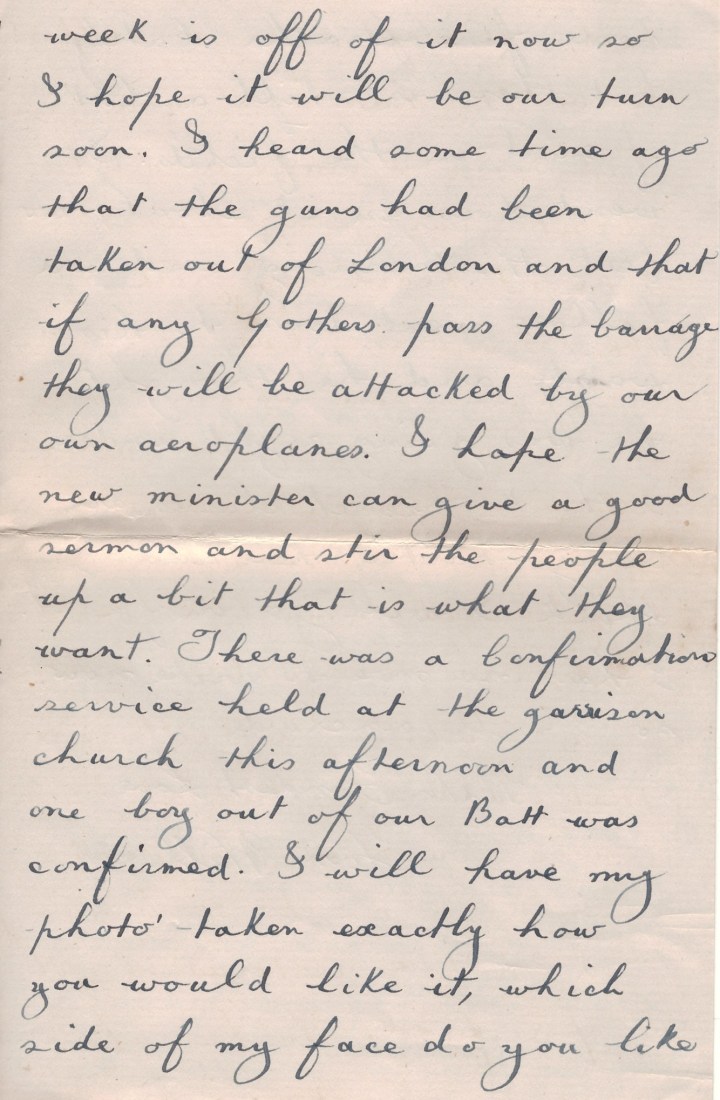 week is off of it now so
I hope it will be our turn
soon. I heard some time ago
that the guns had been
taken out of London and that
if any Gothers pass the barrage
they will be attacked by our
own aeroplanes. I hope the
new minister can give a good
sermon and stir the people
up a bit that is what they
want. There was a Confirmation
service held at the garrison
church this afternoon and
one boy out of our Batt was
confirmed. I will have my
photo' taken exactly how
you would like it, which
side of my face do you like